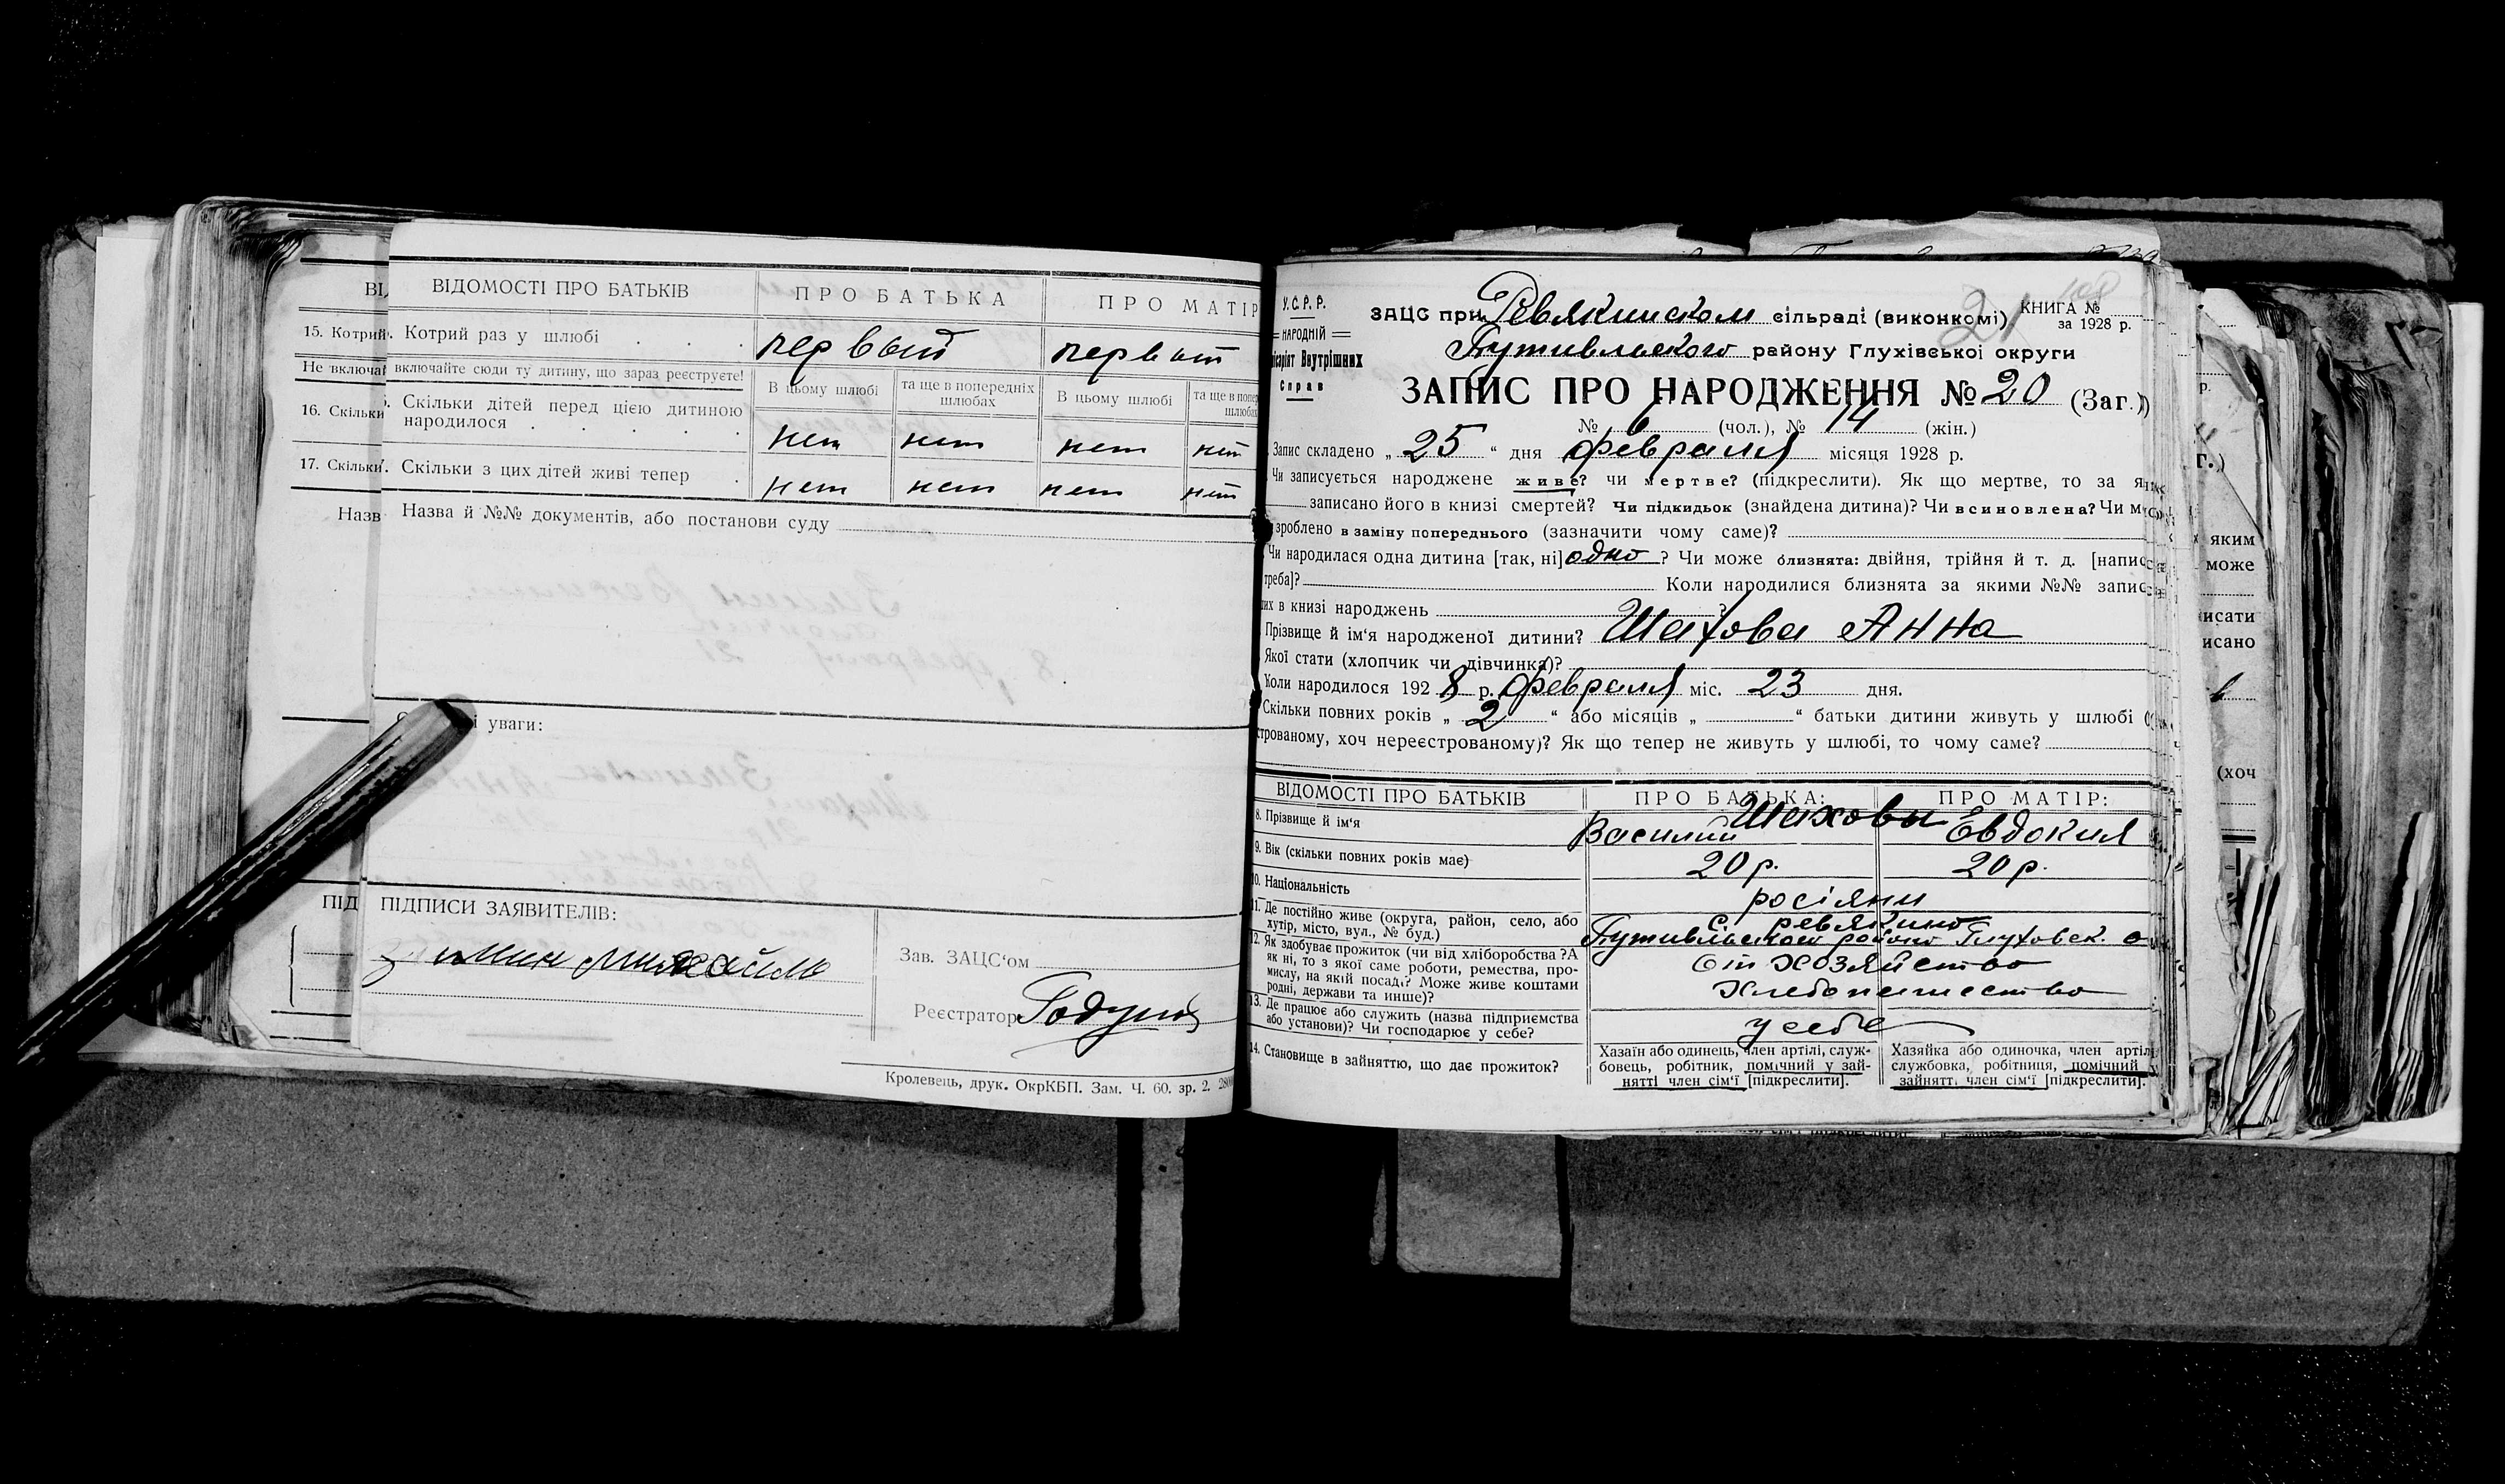 ВІДОМОСТІ ПРО БАТЬКІВ ПРО БАТЬКА ПРО МАТІР
15. Котрий Котрий раз у шлюбі первый первый
Не включай включайте сюди ту дитину, що зараз реєструєте! В цьому шлюбі та ще в попередніх шлюбах В цьому шлюбі та ще в попер шлюбах
16. Скільки Скільки дітей перед цією дитиною народилося нет нет нет нет
17. Скільки Скільки з цих дітей живі тепер нет нет нет нет
Назв Назва й №№ документів, або постанови суду
уваги:
ПІД ПІДПИСИ ЗАЯВИТЕЛІВ:
Зимин Михаил
Зав. ЗАЦС‘ом
Реєстратор
Кролевець, друк. ОкрКБП. Зам. Ч. 60. зр. 2.
У.С.Р.Р.
НАРОДНІЙ
Внутрішних
Справ
21
КНИГА №
за 1928 р.
ЗАЦС при Ревякинском сільраді (виконкомі)
Путивльского району Глухівської округи
ЗАПИС ПРО НАРОДЖЕННЯ № 20 (Заг.)
№ 6 (чол.), № 14 (жін.)
Запис складено „ 25 “ дня февраля місяця 1928 р.
Чи записується народжене живе? чи мертве? (підкреслити). Як що мертве, то за
записано його в книзі смертей? Чи підкидьок (знайдена дитина)? Чи всиновлена? Чи
зроблено в заміну попереднього (зазначити чому саме)?
Чи народилася одна дитина [так, ні] одно ? Чи може близнята: двійня, трійня й т. д. [напис
треба]? Коли народилися близнята за якими №№ запис
их в книзі народжень ?
Прізвище й ім‘я народженої дитини? Шахова Анна
Якої стати (хлопчик чи дівчинка)?
Коли народилося 1928 р. февраля міс. 23 дня.
Скільки повних років „ 2 “ або місяців „ “ батьки дитини живуть у шлюбі
строваному, хоч нереєстрованому)? Як що тепер не живуть у шлюбі, то чому саме?
ВІДОМОСТІ ПРО БАТЬКІВ ПРО БАТЬКА: ПРО МАТІР:
8. Прізвище й ім‘я Шаховы Василий Евдокия
9. Вік (скільки повних років має) 20 р. 20 р.
10. Національність росіяни
11. Де постійно живе (округа, район, село, або с. ревякино
хутір, місто, вул., № буд.) Путивльского района Глуховск. о
12. Як здобуває прожиток (чи від хліборобства? А От хозяйство
як ні, то з якої саме роботи, ремества, про-
мислу, на якій посаді? Може живе коштами Хлебопашество
родні, держави та инше)?
13. Де працює або служить (назва підприємства у себе
або установи)? Чи господарює у себе?
14. Становище в зайняттю, що дає прожиток?
Хазяїн або одинець, член артілі, служ-
бовець, робітник, помічний у зай-
нятті член сім‘ї [підкреслити].
Хазяйка або одиночка, член артіл
службовка, робітниця, помічний
зайнятт. член сім‘ї [підкреслити].
яким
може
исати
исано
(хоч